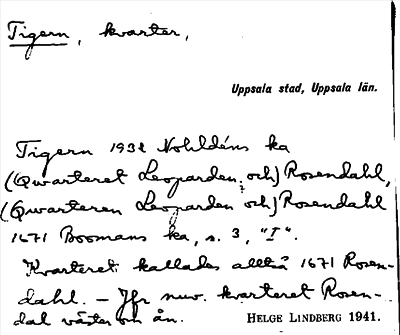 Tigern, kvarter,
Uppsala stad, Uppsala län.
Tigern 1932 Nohldéns ka
(Qwarteret Leoparden och) Rosendahl,
(Qwarteren Leoparden och) Rosendahl
1671 Boomans ka, s. 3, "I".
Kvarteret kallades alltså 1671 Rosen-
dahl. - Jfr nuv. kvarteret Rosen-
dal väster om ån. HELGE LINDBERG 1941.